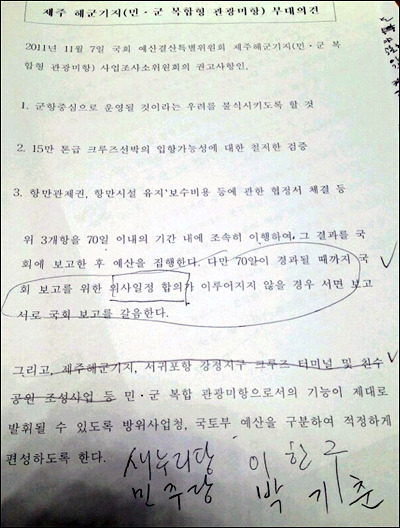 제주 해군기지(민·군 복합형 관광미항) 부대의견
2011년 11월 7일 국회 예산결산특별위원회 제주해군기지(민·군 복
합형 관광미항) 사업조사소위원회의 권고사항인,
1. 군항중심으로 운영될 것이라는 우려를 불식시키도록 할 것
2. 15만 톤급 크루즈선박의 입항가능성에 대한 철저한 검증
3. 항만관제권, 항만시설 유지보수비용 등에 관한 협정서 체결 등
위 3개항을 70일 이내의 기간 내에 조속히 이행하여, 그 결과를 국
회에 보고한 후 예산을 집행한다. 다만 70일이 경과될 때까지 국
회 보고를 위한 의사일정 합의가 이루어지지 않을 경우 서면 보고
서로 국회 보고를 갈음한다.
그리고, 제주해군기지, 서귀포항 강정지구 크루즈 터미널 및 친수
공원 조성사업 등 민·군 복합 관광미항으로서의 기능이 제대로
발휘될 수 있도록 방위사업청, 국토부 예산을 구분하여 적정하게
편성하도록 한다.
새누리당 이한구
민주당 박기춘